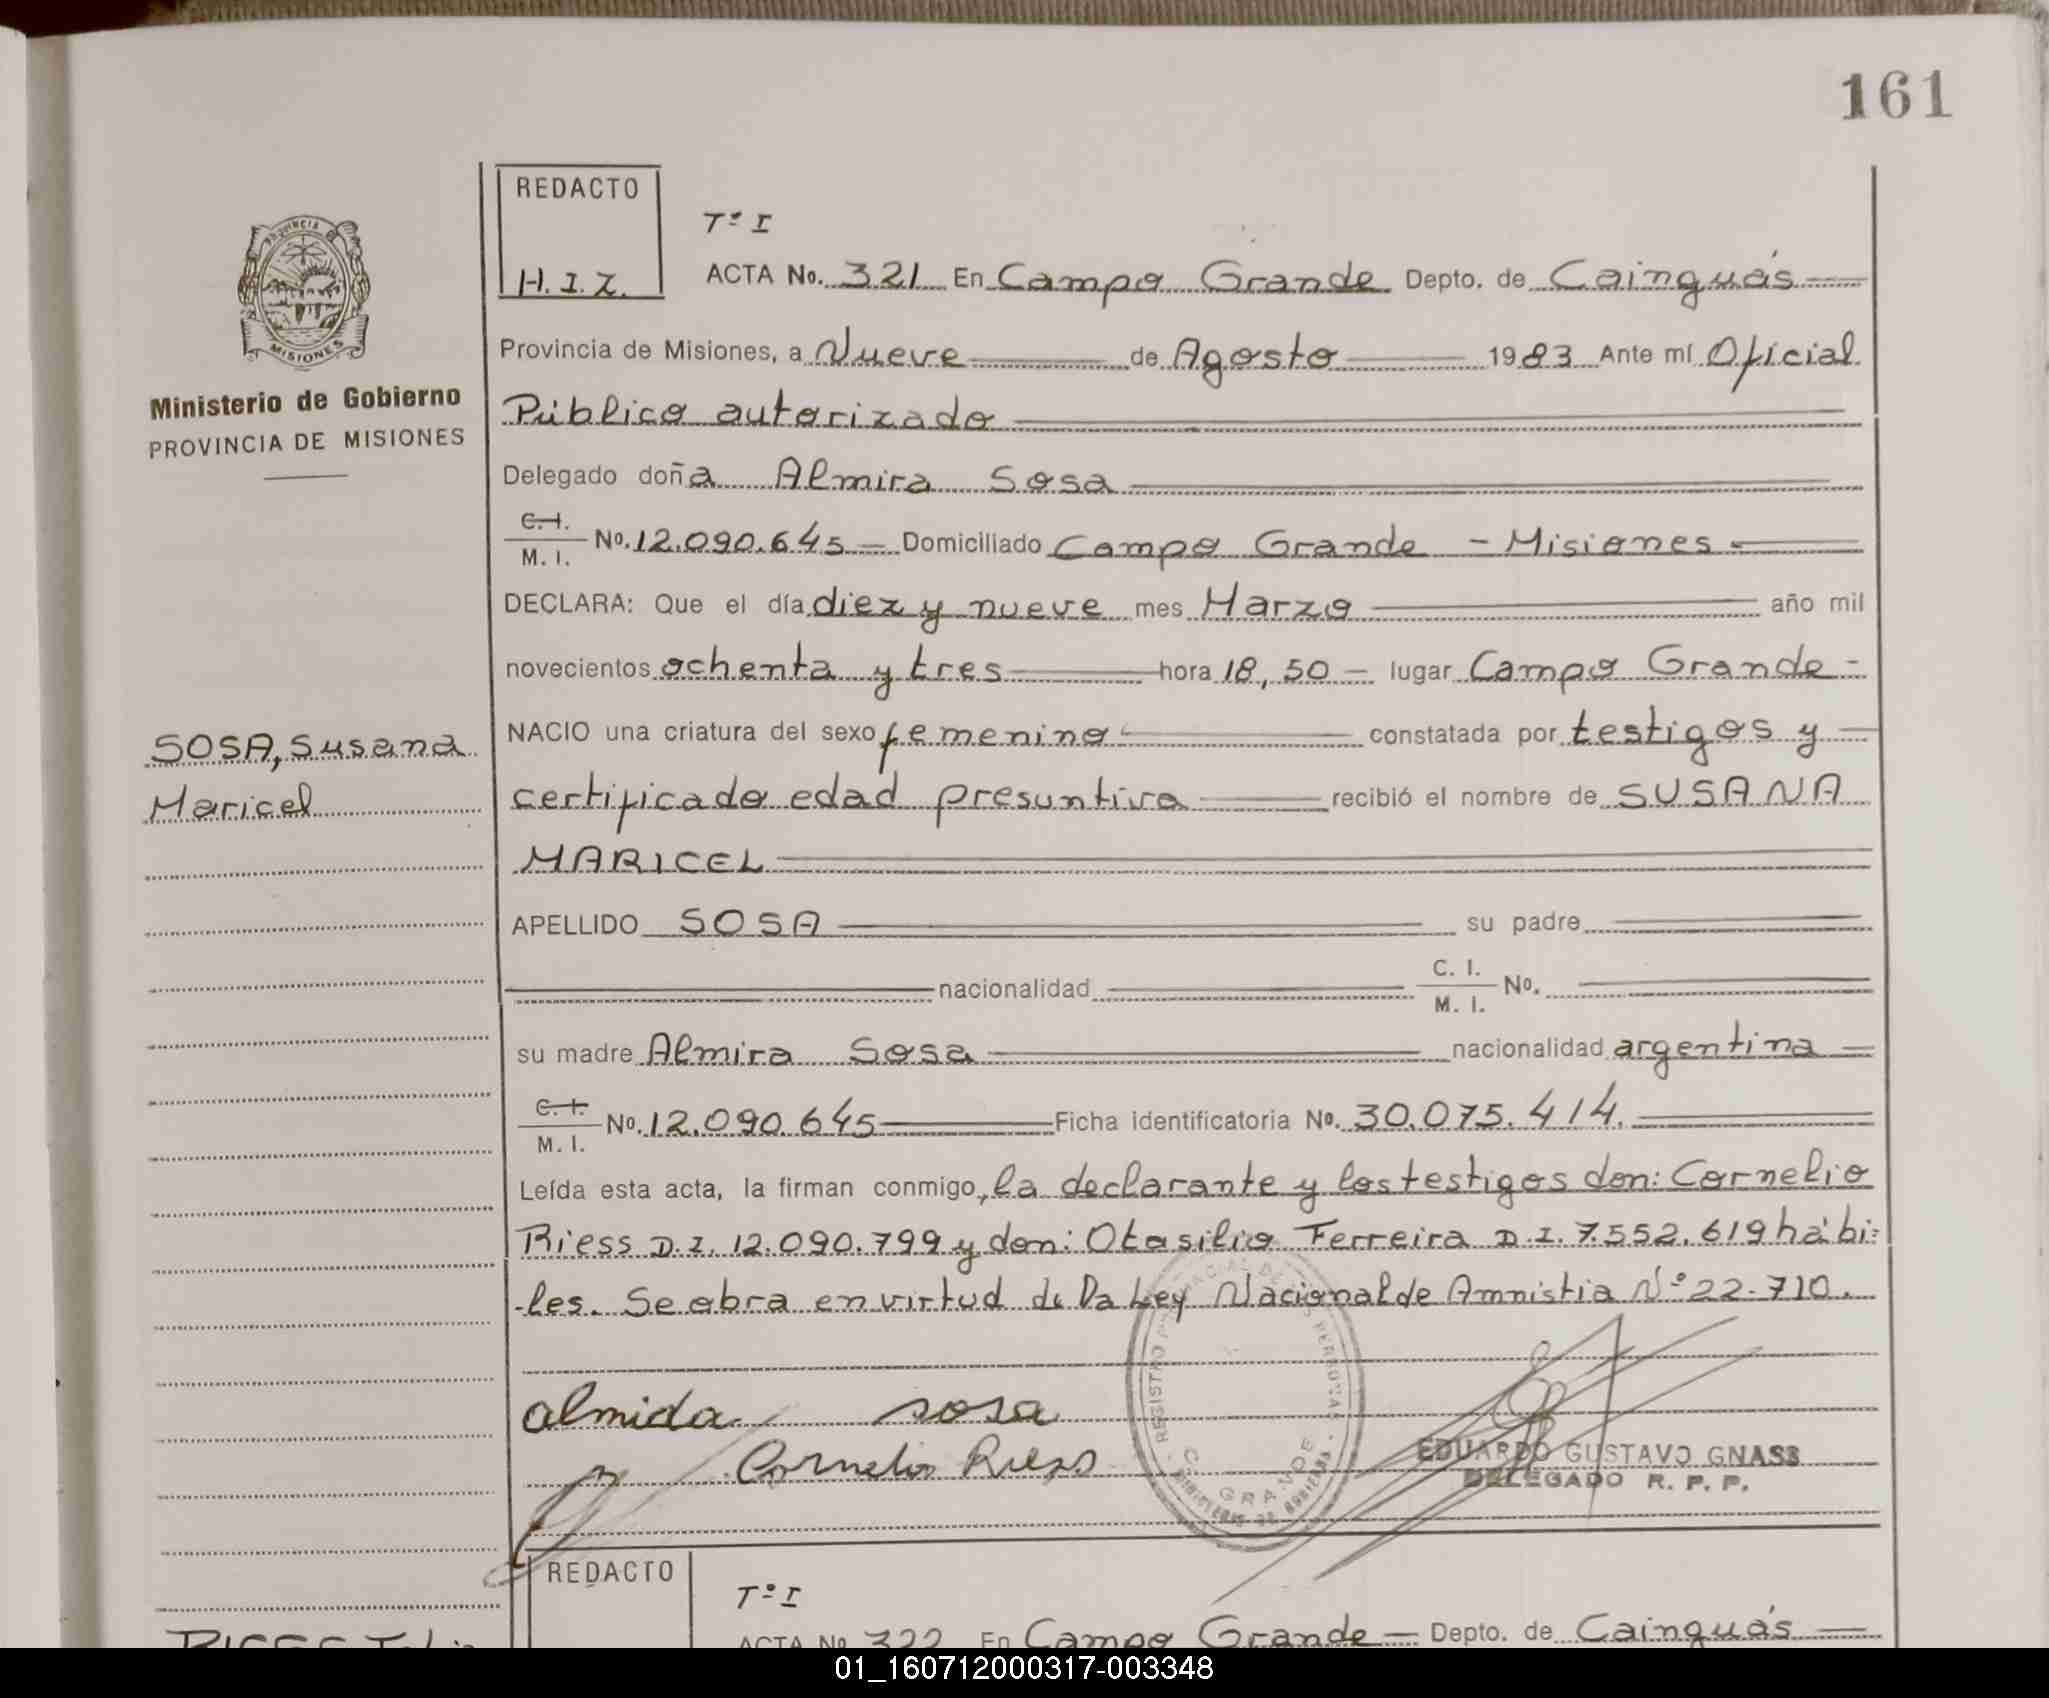 161
REDACTO
H.I.Z.
Tº I
ACTA No. 321 En Campo Grande Depto. de Cainguás
PROVINCIA MISIONES
Ministerio de Gobierno
PROVINCIA DE MISIONES
Provincia de Misiones, a Nueve de Agosto 1983 Ante mí Oficial
Público autorizado
Delegado doña Almira Sosa
C. I. M. I. No. 12.090.645 - Domiciliado Campo Grande - Misiones -
DECLARA: Que el día diez y nueve mes Marzo año mil
novecientos ochenta y tres hora 18,50 - lugar Campo Grande -
SOSA, Susana
Maricel
NACIO una criatura del sexo femenino constatada por testigos y
certificado edad presuntiva recibió el nombre de SUSANA
MARICEL
APELLIDO SOSA su padre
nacionalidad C. I. M. I. No.
su madre Almira Sosa nacionalidad argentina
C. I. M. I. No. 12.090.645 Ficha identificatoria No. 30.075.414.
Leída esta acta, la firman conmigo, la declarante y los testigos don: Cornelio
Riess D.I. 12.090.799 y don: Otasilio Ferreira D.I. 7.552.619 hábi-
les. Se obra en virtud de la Ley Nacional de Amnistia Nº 22.710.
almida sosa
Cornelio Riess
REGISTRO PROVINCIAL DE LAS PERSONAS
C. GRANDE
MINISTERIO DE GOBIERNO
EDUARDO GUSTAVO GNASS
DELEGADO R. P. P.
REDACTO
Tº I
ACTA No 322 En Campo Grande - Depto. de Cainguás
01_160712000317-003348